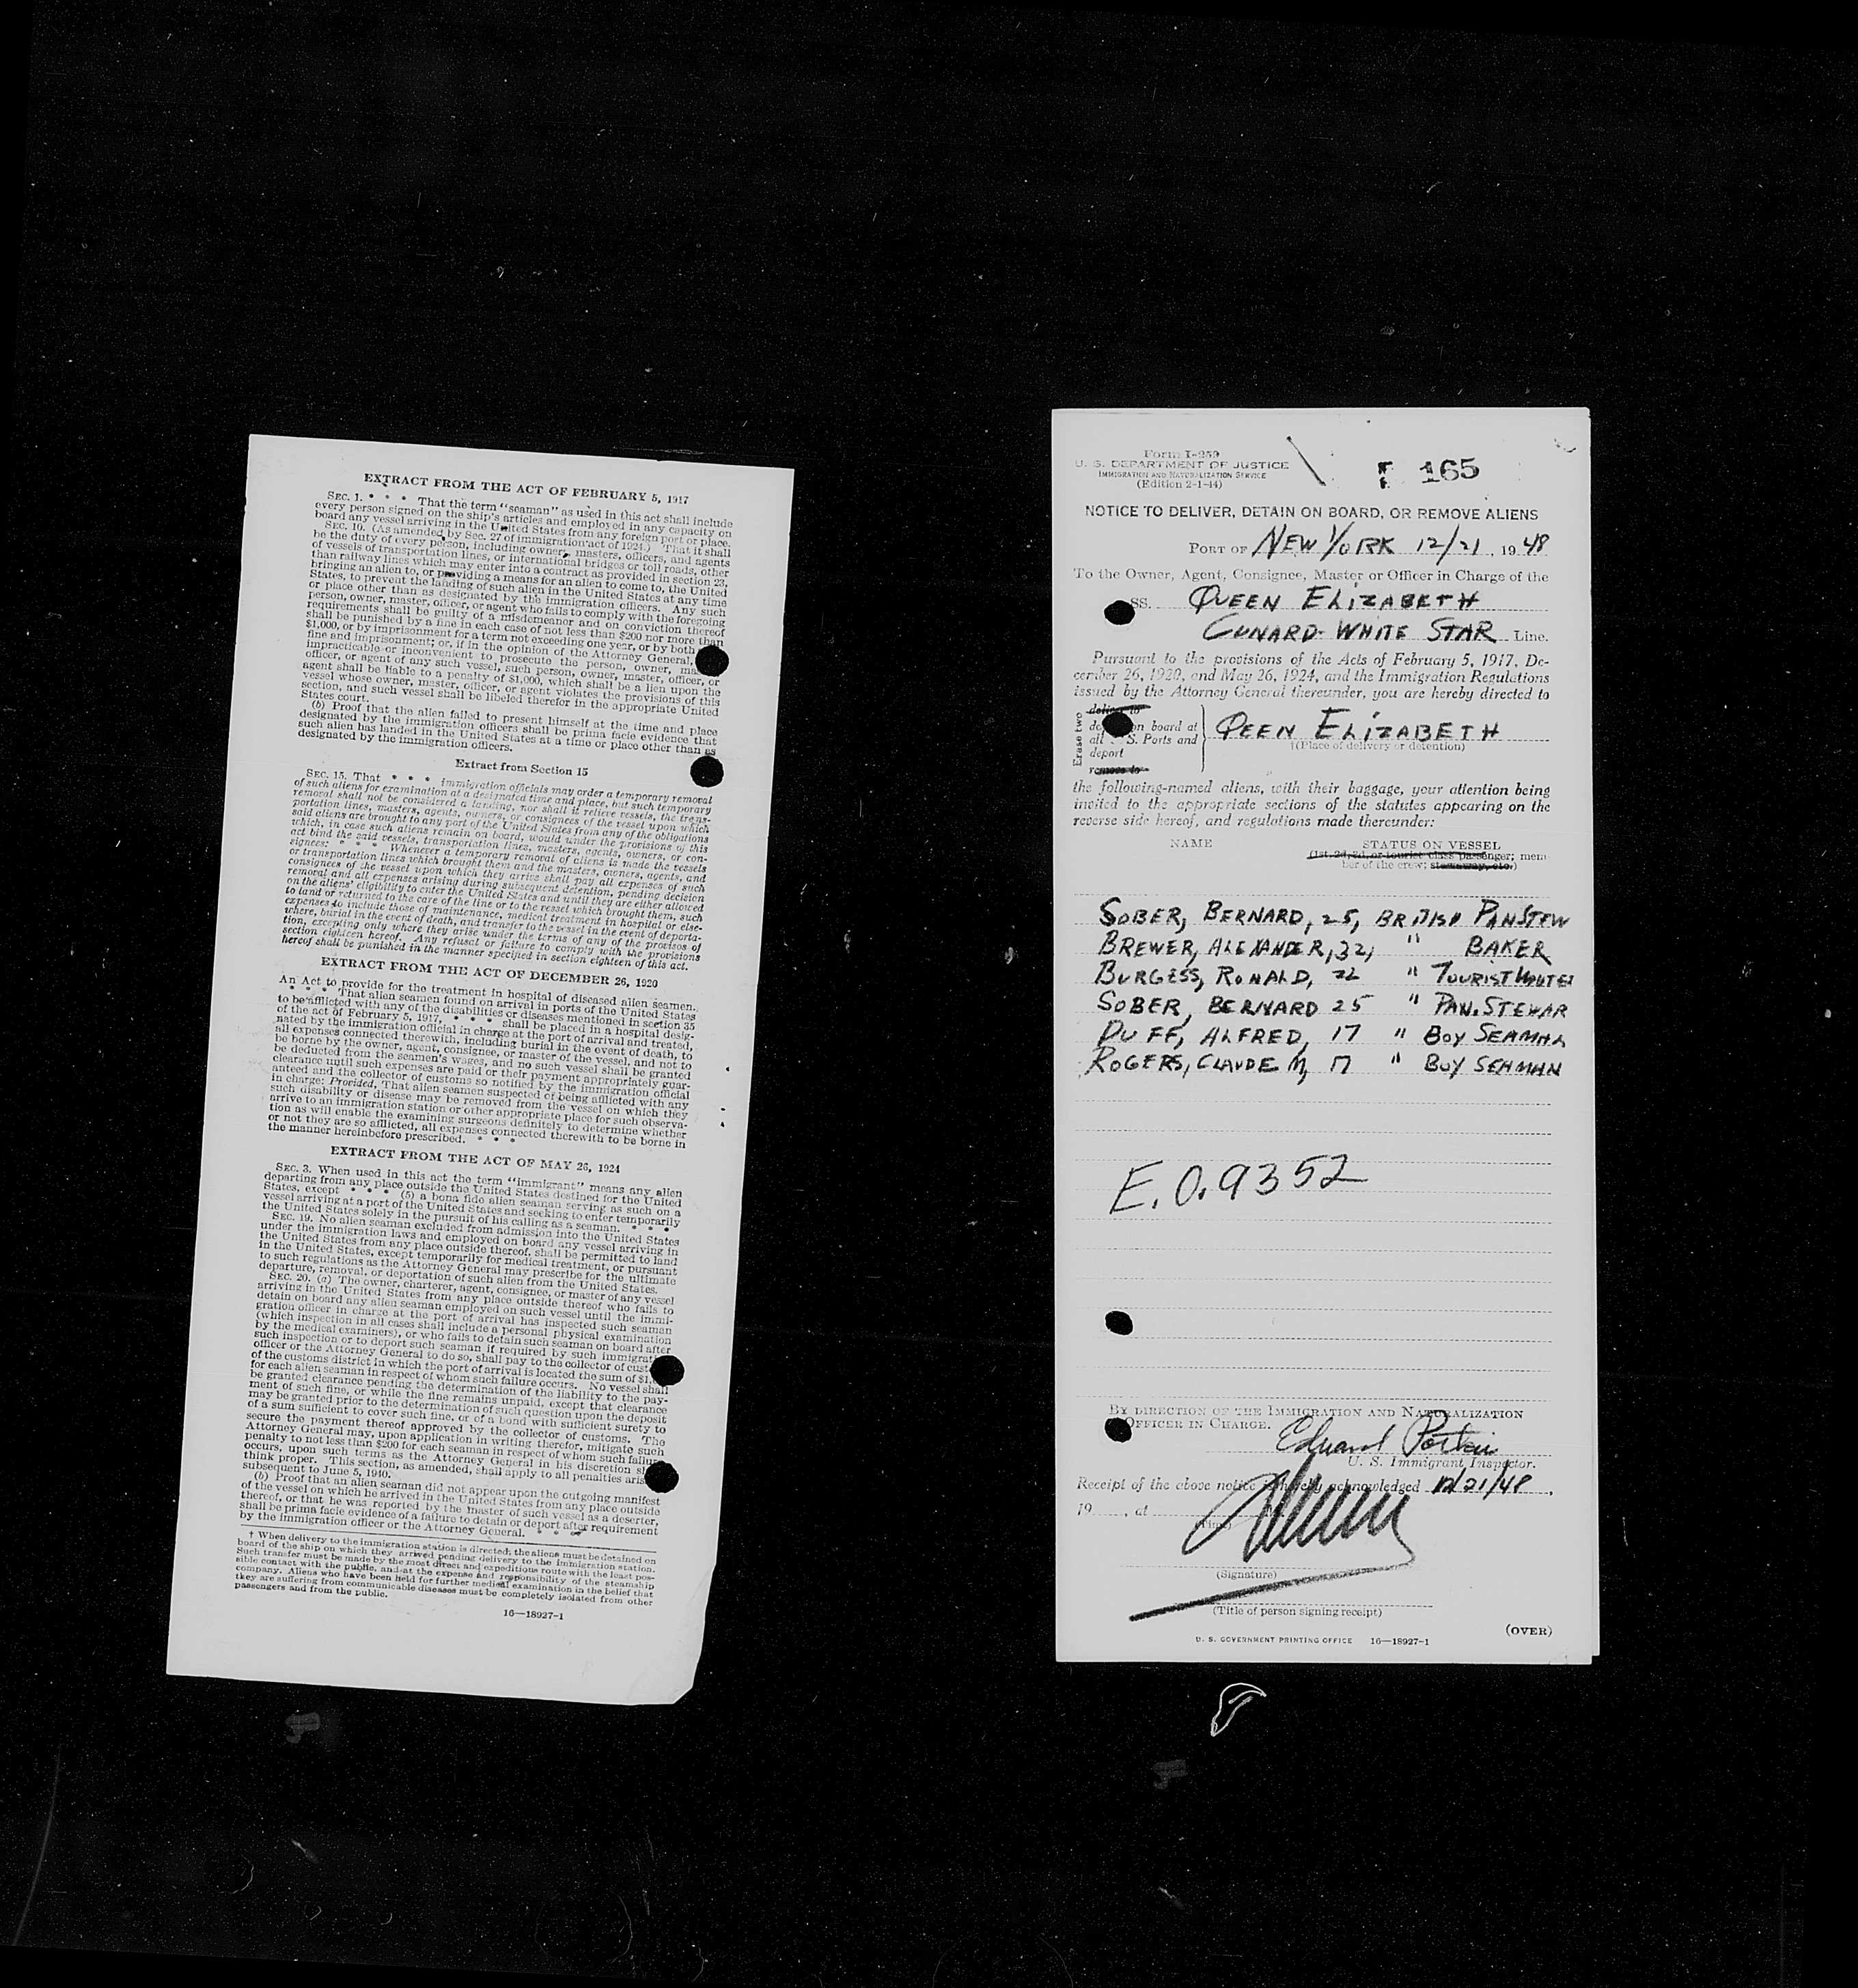 EXTRACT FROM THE ACT OF FEBRUARY 5, 1917
SEC. 1. * * * That the term "seaman" as used in this act shall include
every person signed on the ship's articles and employed in any capacity on
board any vessel arriving in the United States from any foreign port or place.
SEC. 10. (As amended by Sec. 27 of immigration act of 1924.) That it shall
be the duty of every person, including owners, masters, officers, and agents
of vessels of transportation lines, or international bridges or toll roads, other
than railway lines which may enter into a contract as provided in section 23,
bringing an alien to, or providing a means for an alien to come to, the United
States, to prevent the landing of such alien in the United States at any time
or place other than as designated by the immigration officers. Any such
person, owner, master, officer, or agent who fails to comply with the foregoing
requirements shall be guilty of a misdemeanor and on conviction thereof
shall be punished by a fine in each case of not less than $200 nor more than
$1,000, or by imprisonment for a term not exceeding one year, or by both
fine and imprisonment; or, if in the opinion of the Attorney General,
impracticable or inconvenient to prosecute the person, owner, ma
officer, or agent of any such vessel, such person, owner, master, officer, or
agent shall be liable to a penalty of $1,000, which shall be a lien upon the
vessel whose owner, master, officer, or agent violates the provisions of this
section, and such vessel shall be libeled therefor in the appropriate United
States court.
(b) Proof that the alien failed to present himself at the time and place
designated by the immigration officers shall be prima facie evidence that
such alien has landed in the United States at a time or place other than as
designated by the immigration officers.
Extract from Section 15
SEC. 15. That * * * immigration officials may order a temporary removal
of such aliens for examination at a designated time and place, but such temporary
removal shall not be considered a landing, nor shall it relieve vessels, the trans-
portation lines, masters, agents, owners, or consignees of the vessel upon which
said aliens are brought to any port of the United States from any of the obligations
which, in case such aliens remain on board, would under the provisions of this
act bind the said vessels, transportation lines, masters, agents, owners, or con-
signees: * * * Whenever a temporary removal of aliens is made the vessels
or transportation lines which brought them and the masters, owners, agents, and
consignees of the vessel upon which they arrive shall pay all expenses of such
removal and all expenses arising during subsequent detention, pending decision
on the aliens' eligibility to enter the United States and until they are either allowed
to land or returned to the care of the line or to the vessel which brought them, such
expenses to include those of maintenance, medical treatment in hospital or else-
where, burial in the event of death, and transfer to the vessel in the event of deporta-
tion, excepting only where they arise under the terms of any of the provisos of
section eighteen hereof. Any refusal or failure to comply with the provisions
hereof shall be punished in the manner specified in section eighteen of this act.
EXTRACT FROM THE ACT OF DECEMBER 26, 1920
An Act to provide for the treatment in hospital of diseased alien seamen.
* * * That alien seamen found on arrival in ports of the United States
to be afflicted with any of the disabilities or diseases mentioned in section 35
of the act of February 5, 1917, * * * shall be placed in a hospital desig-
nated by the immigration official in charge at the port of arrival and treated,
all expenses connected therewith, including burial in the event of death, to
be borne by the owner, agent, consignee, or master of the vessel, and not to
be deducted from the seamen's wages, and no such vessel shall be granted
clearance until such expenses are paid or their payment appropriately guar-
anteed and the collector of customs so notified by the immigration official
in charge: Provided, That alien seamen suspected of being afflicted with any
such disability or disease may be removed from the vessel on which they
arrive to an immigration station or other appropriate place for such observa-
tion as will enable the examining surgeons definitely to determine whether
or not they are so afflicted, all expenses connected therewith to be borne in
the manner hereinbefore prescribed. * * *
EXTRACT FROM THE ACT OF MAY 26, 1924
SEC. 3. When used in this act the term "immigrant" means any alien
departing from any place outside the United States destined for the United
States, except * * * (5) a bona fide alien seaman serving as such on a
vessel arriving at a port of the United States and seeking to enter temporarily
the United States solely in the pursuit of his calling as a seaman. * * *
SEC. 19. No alien seaman excluded from admission into the United States
under the immigration laws and employed on board any vessel arriving in
the United States from any place outside thereof, shall be permitted to land
in the United States, except temporarily for medical treatment, or pursuant
to such regulations as the Attorney General may prescribe for the ultimate
departure, removal, or deportation of such alien from the United States.
SEC. 20. (a) The owner, charterer, agent, consignee, or master of any vessel
arriving in the United States from any place outside thereof who fails to
detain on board any alien seaman employed on such vessel until the immi-
gration officer in charge at the port of arrival has inspected such seaman
(which inspection in all cases shall include a personal physical examination
by the medical examiners), or who fails to detain such seaman on board after
such inspection or to deport such seaman if required by such immigrat
officer or the Attorney General to do so, shall pay to the collector of cust
of the customs district in which the port of arrival is located the sum of $1,
for each alien seaman in respect of whom such failure occurs. No vessel shall
be granted clearance pending the determination of the liability to the pay-
ment of such fine, or while the fine remains unpaid, except that clearance
may be granted prior to the determination of such question upon the deposit
of a sum sufficient to cover such fine, or of a bond with sufficient surety to
secure the payment thereof approved by the collector of customs. The
Attorney General may, upon application in writing therefor, mitigate such
penalty to not less than $200 for each seaman in respect of whom such failure
occurs, upon such terms as the Attorney General in his discretion s
think proper. This section, as amended, shall apply to all penalties aris
subsequent to June 5, 1940.
(b) Proof that an alien seaman did not appear upon the outgoing manifest
of the vessel on which he arrived in the United States from any place outside
thereof, or that he was reported by the master of such vessel as a deserter,
shall be prima facie evidence of a failure to detain or deport after requirement
by the immigration officer or the Attorney General. * * *
† When delivery to the immigration station is directed, the aliens must be detained on
board of the ship on which they arrived pending delivery to the immigration station.
Such transfer must be made by the most direct and expeditious route with the least pos-
sible contact with the public, and at the expense and responsibility of the steamship
company. Aliens who have been held for further medical examination in the belief that
they are suffering from communicable diseases must be completely isolated from other
passengers and from the public.
16—18927-1
Form I-259
U. S. DEPARTMENT OF JUSTICE
IMMIGRATION AND NATURALIZATION SERVICE
(Edition 2-1-44)
165
NOTICE TO DELIVER, DETAIN ON BOARD, OR REMOVE ALIENS
PORT OF NEW YORK 12/21, 1948
To the Owner, Agent, Consignee, Master or Officer in Charge of the
SS. QUEEN ELIZABETH
CUNARD-WHITE STAR Line.
Pursuant to the provisions of the Acts of February 5, 1917, De-
cember 26, 1920, and May 26, 1924, and the Immigration Regulations
issued by the Attorney General thereunder, you are hereby directed to
Erase two
deliver to
de on board at
all S. Ports and
deport
remove to
QEEN ELIZABETH
†(Place of delivery or detention)
the following-named aliens, with their baggage, your attention being
invited to the appropriate sections of the statutes appearing on the
reverse side hereof, and regulations made thereunder:
NAME STATUS ON VESSEL
(1st, 2d, 3d, or tourist class passenger; mem
ber of the crew; stowaway, etc.)
SOBER, BERNARD, 25, BRITISH PANSTEW
BREWER, ALEXANDER, 32, " BAKER
BURGESS, RONALD, 22 " TOURIST WAITER
SOBER, BERNARD 25 " PAN. STEWAR
DUFF, ALFRED, 17 " BOY SEAMAN
ROGERS, CLAUDE M, 17 " BOY SEAMAN
E.O. 9352
BY DIRECTION OF THE IMMIGRATION AND NATURALIZATION
OFFICER IN CHARGE.
Edward
U. S. Immigrant Inspector.
Receipt of the above notice is hereby acknowledged 12/21/48,
19 , at
(Time)
(Signature)
(Title of person signing receipt)
U. S. GOVERNMENT PRINTING OFFICE 16—18927-1
(OVER)